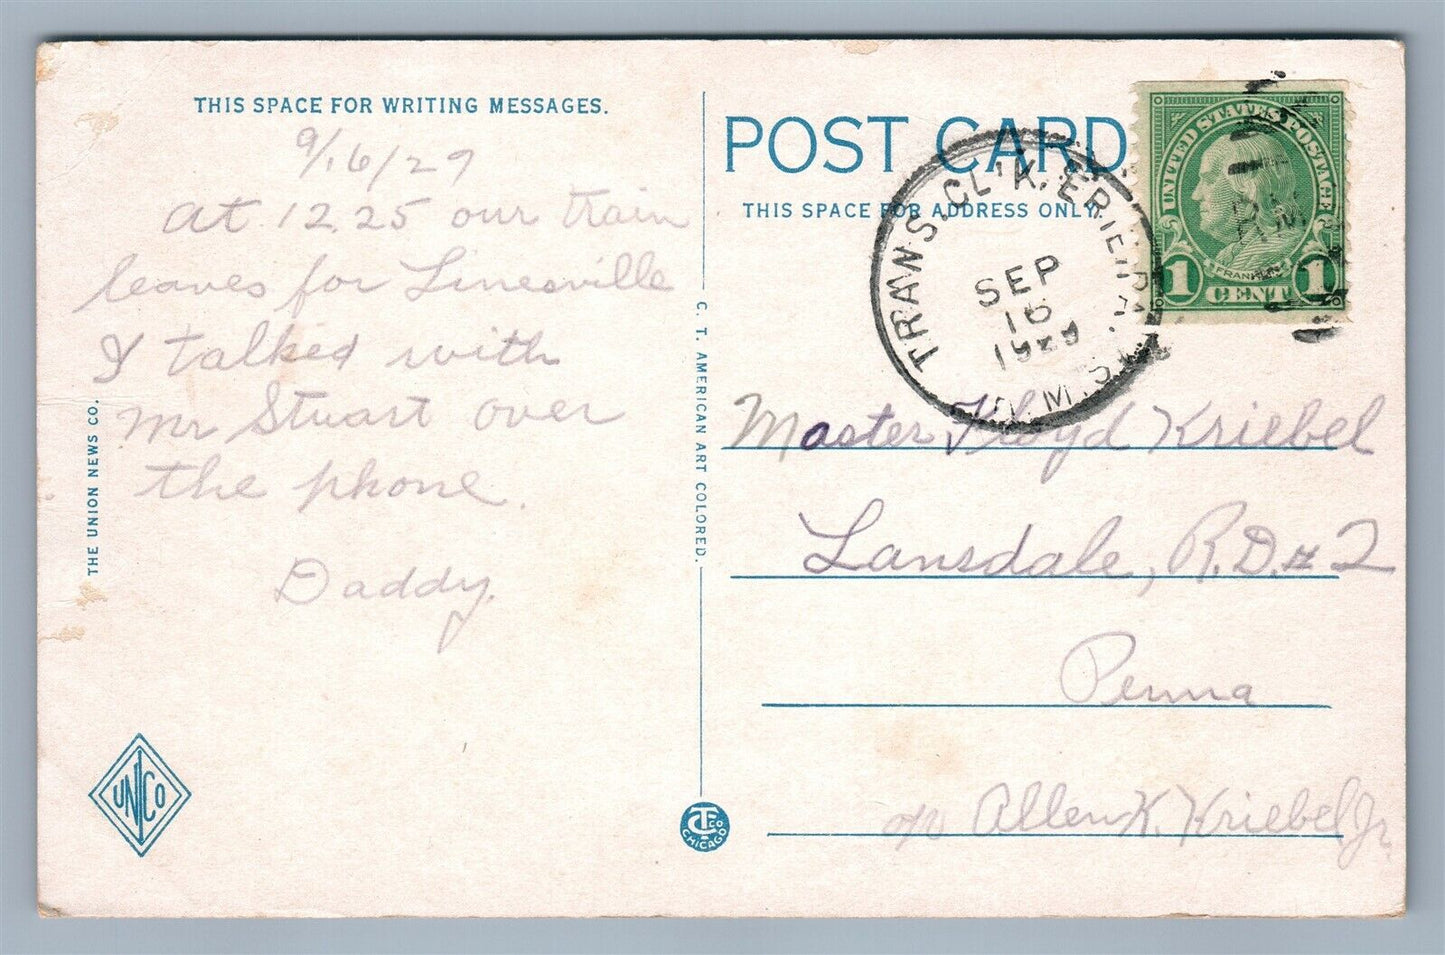 THIS SPACE FOR WRITING MESSAGES.
9/16/29
At 12.25 our train
leaves for Linesville
I talked with
Mr Stuart over
the phone.
Daddy.
THE UNION NEWS CO.
UNICO
C. T. AMERICAN ART COLORED.
CTCO
CHICAGO
POST CARD
THIS SPACE FOR ADDRESS ONLY.
TRANS. CLK. ERIE, PA.
SEP
16
1929
R.M.S.
UNITED STATES POSTAGE
FRANKLIN
1 CENT 1
R.M.
Master Floyd Kriebel
Lansdale, R.D.# 2
Penna
c/o Allen K. Kriebel Jr.